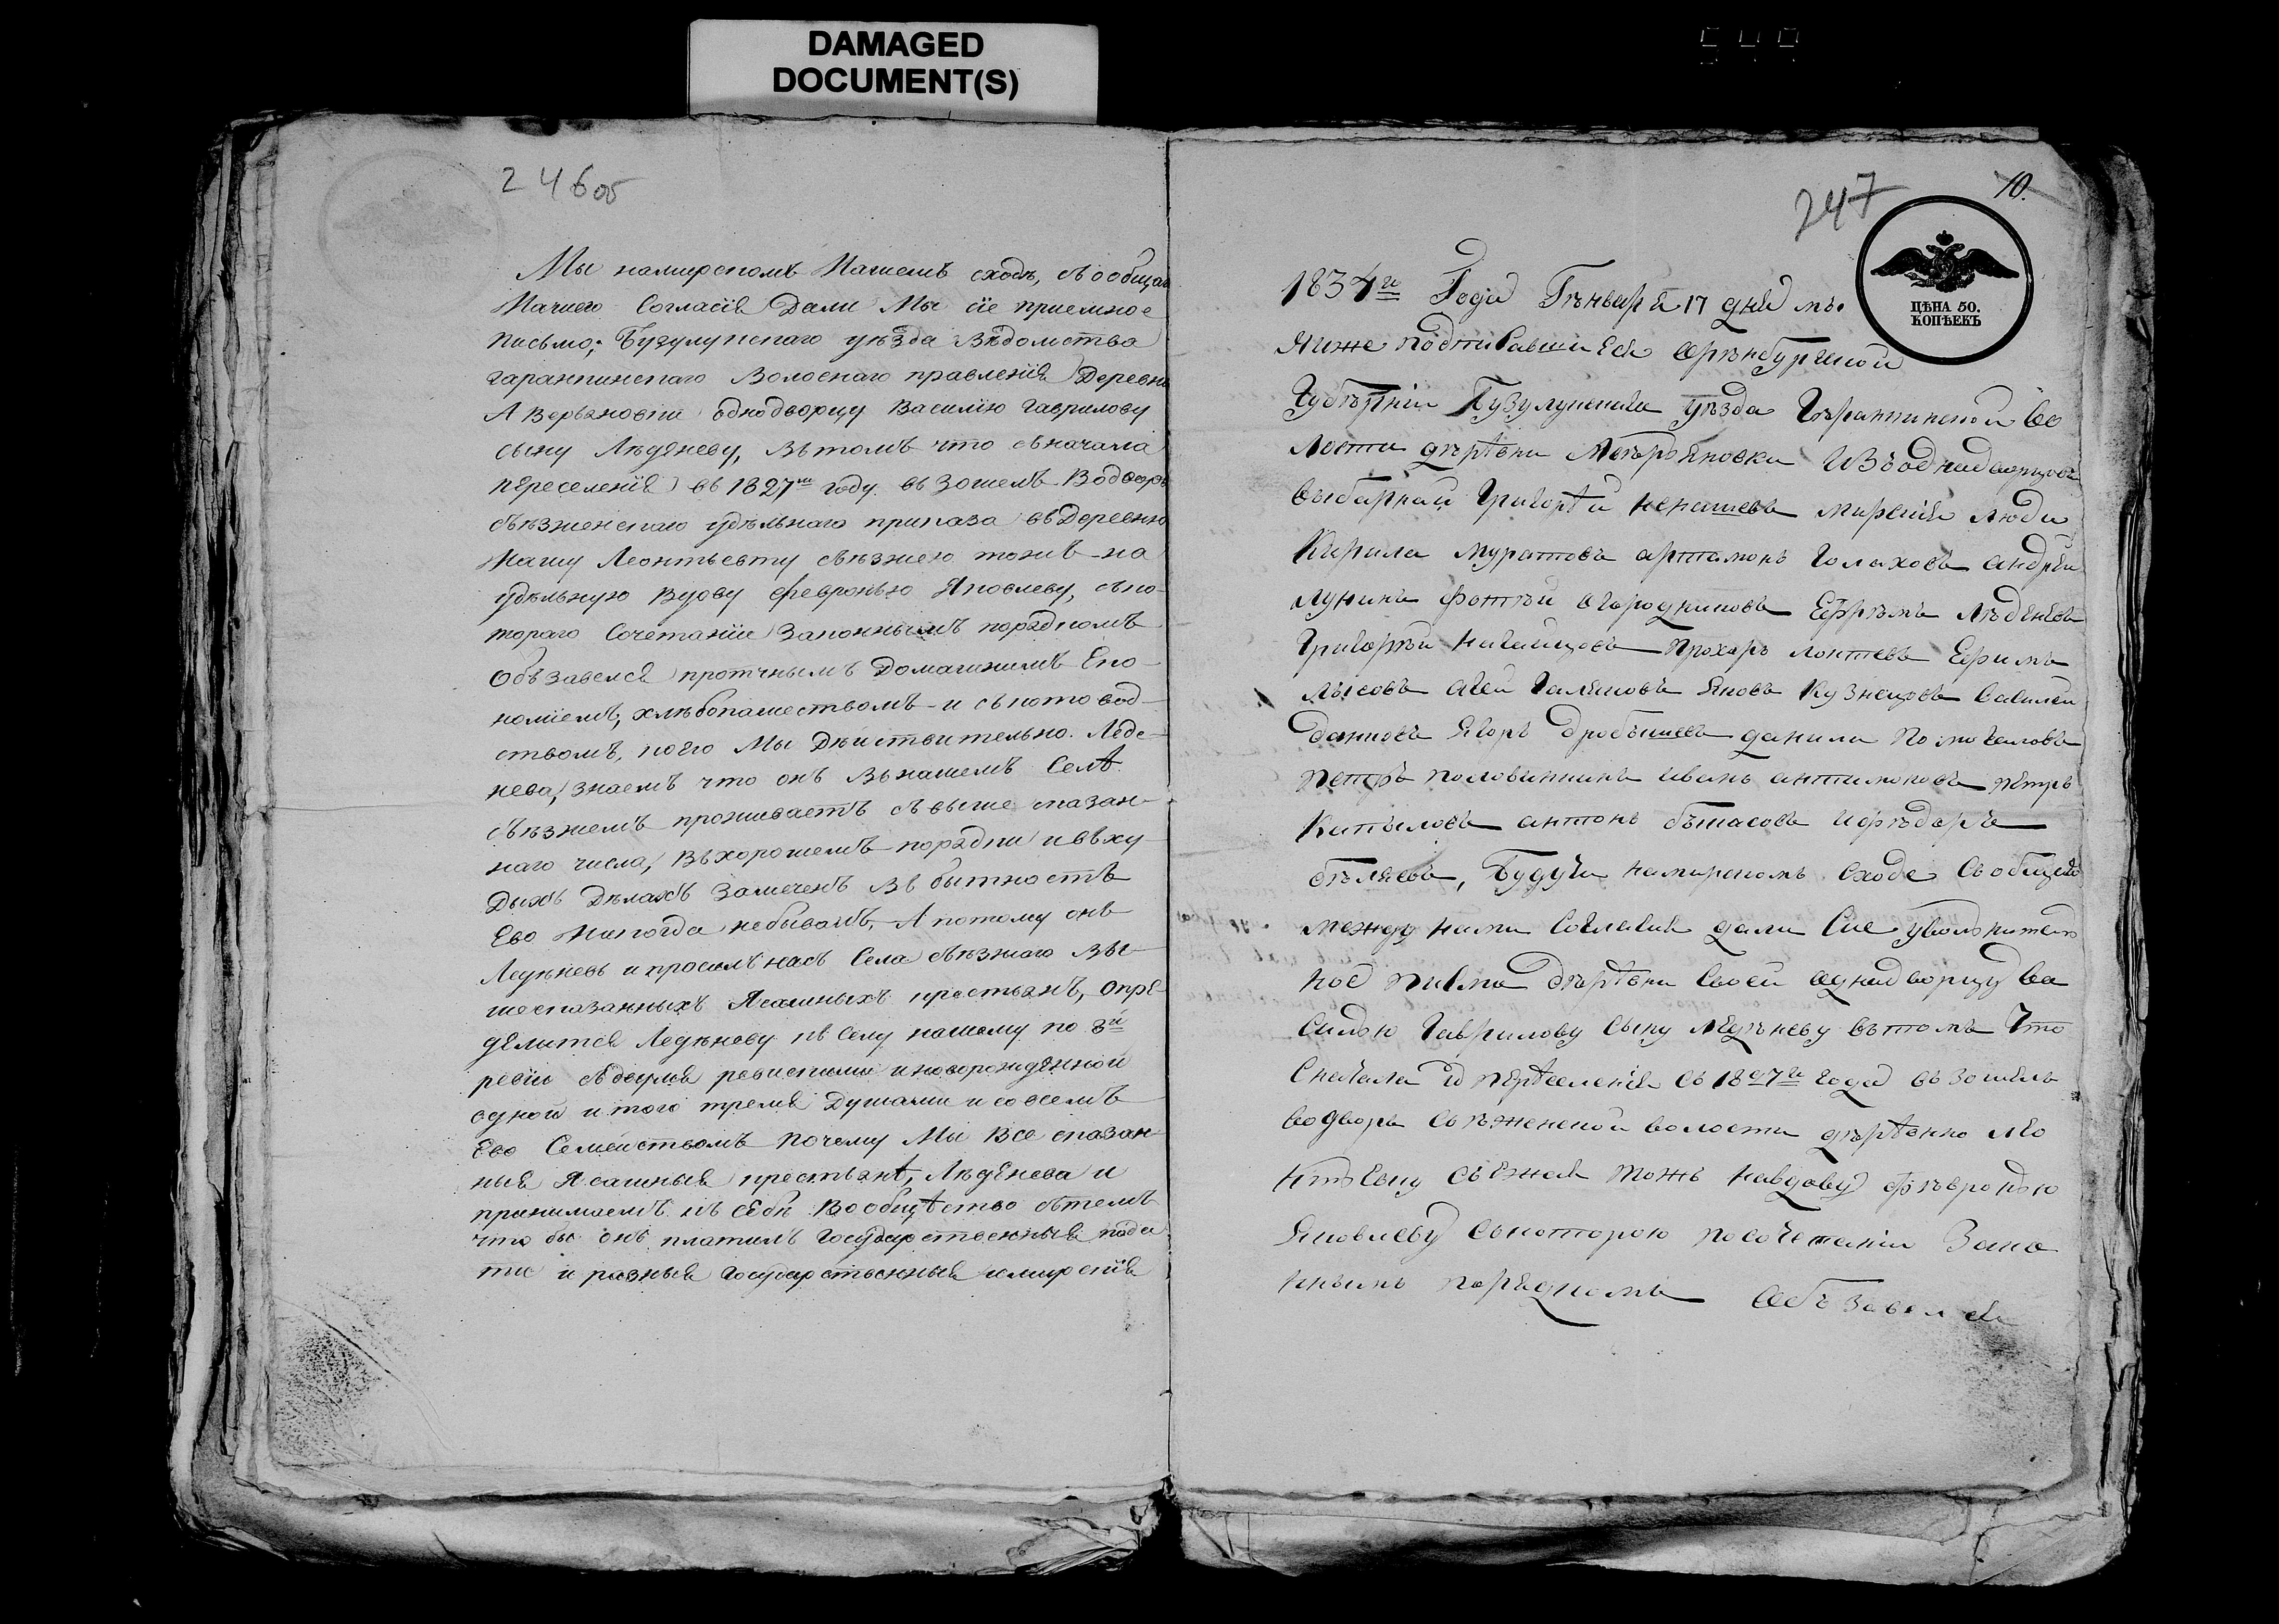 DAMAGED
DOCUMENT(S)
246об
Мы намирскомъ Нашемъ сходѣ, съ общаго
Нашего Согласія Дали Мы сіе приемное
письмо; Бузулукскаго уѣзда Вѣдомства
гаранкинскаго Волоснаго правленія Деревни
Аверьяновки однодворцу Василию гаврилову
сыну Лядяневу, въ томъ что сначала
переселенія въ 1827мъ году взошелъ Водворъ
съѣзженскаго удѣльнаго приказа въ Деревню
Нашу Леонтьевту съѣзжею тожъ на
удѣльную вдову февронью Яковлеву, съко-
тораго Сочетаніи Законнымъ порядкомъ
Объзавелся протчнымъ Домашнимъ Еко-
номіемъ, хлѣбопашествомъ и скотовод-
ствомъ, кого Мы Дѣиствительно Леде-
нева, знаемъ что онъ внашемъ Селѣ
съѣзжемъ проживаетъ съвыше сказан-
наго числа, Въхорошемъ порядки и въху-
дыхъ Дѣлахъ Замеченъ Въ бытность
Ево Никогда небывалъ, А потому онъ
Ледѣневъ и просилъ насъ Села съѣзжаго Вы-
шесказанныхъ Ясашныхъ крестьянъ, опре-
делится Ледѣневу къ Селу нашему по 8й
ревіи съдвумя ревискими и новорожденной
одной итого тремя Душами и совсемъ
Ево Семействомъ почему Мы Все сказан-
ныя Ясашныя крестьянѣ, Лядѣнева и
принимаемъ къ себѣ Вообщѣство стемъ
что бы онъ платилъ Государственныя пода
ти и разныя государственныя и мирскія
247
10.
ЦѢНА 50.
КОПѢЕКЪ
1834го Года Генваря 17 дня мы.
Ниже подписавшиеся Оренбургской
Губерніи Бузулукскаго уѣзда Гаранкинской во
лости деревни Аверьяновки Изъ однадворцовъ
выбарнай Григорѣй ненашевъ мирскія люди
Кирила муратовъ артамонъГолаховъ андрѣи
лунинъ Фотѣй Огародниковъ Ефрѣмъ Лѣдѣневъ
Григорѣй нагайцовъ Прохаръ лоптевъ Ефимъ
лысовъ агей Галяновъ яковъ Кузнецовъ василей
Данковъ Ягоръ Дробышевъ данила
петръ половинкинъ иванъ антимоновъ петръ
Капыловъ антонъ бѣласовъ ифѣдаръ
бѣляевъ, Будучи намирскомъ сходе Собщего
между нами Согласія дали Сие увольнитель
ное писмо дерѣвни Своей однадворцу ва
силью Гаврилову Сыну ледѣневу въ томъ Что
Сначала переселенія Съ 1827го года взошелъ
водворъ Съѣженской волости дерѣвню лео
нтьевку Съезжея тожъ навдаву февронью
Яковлеву Скоторою посочетании Зако
ннымъ порядкомъ Обзавелся